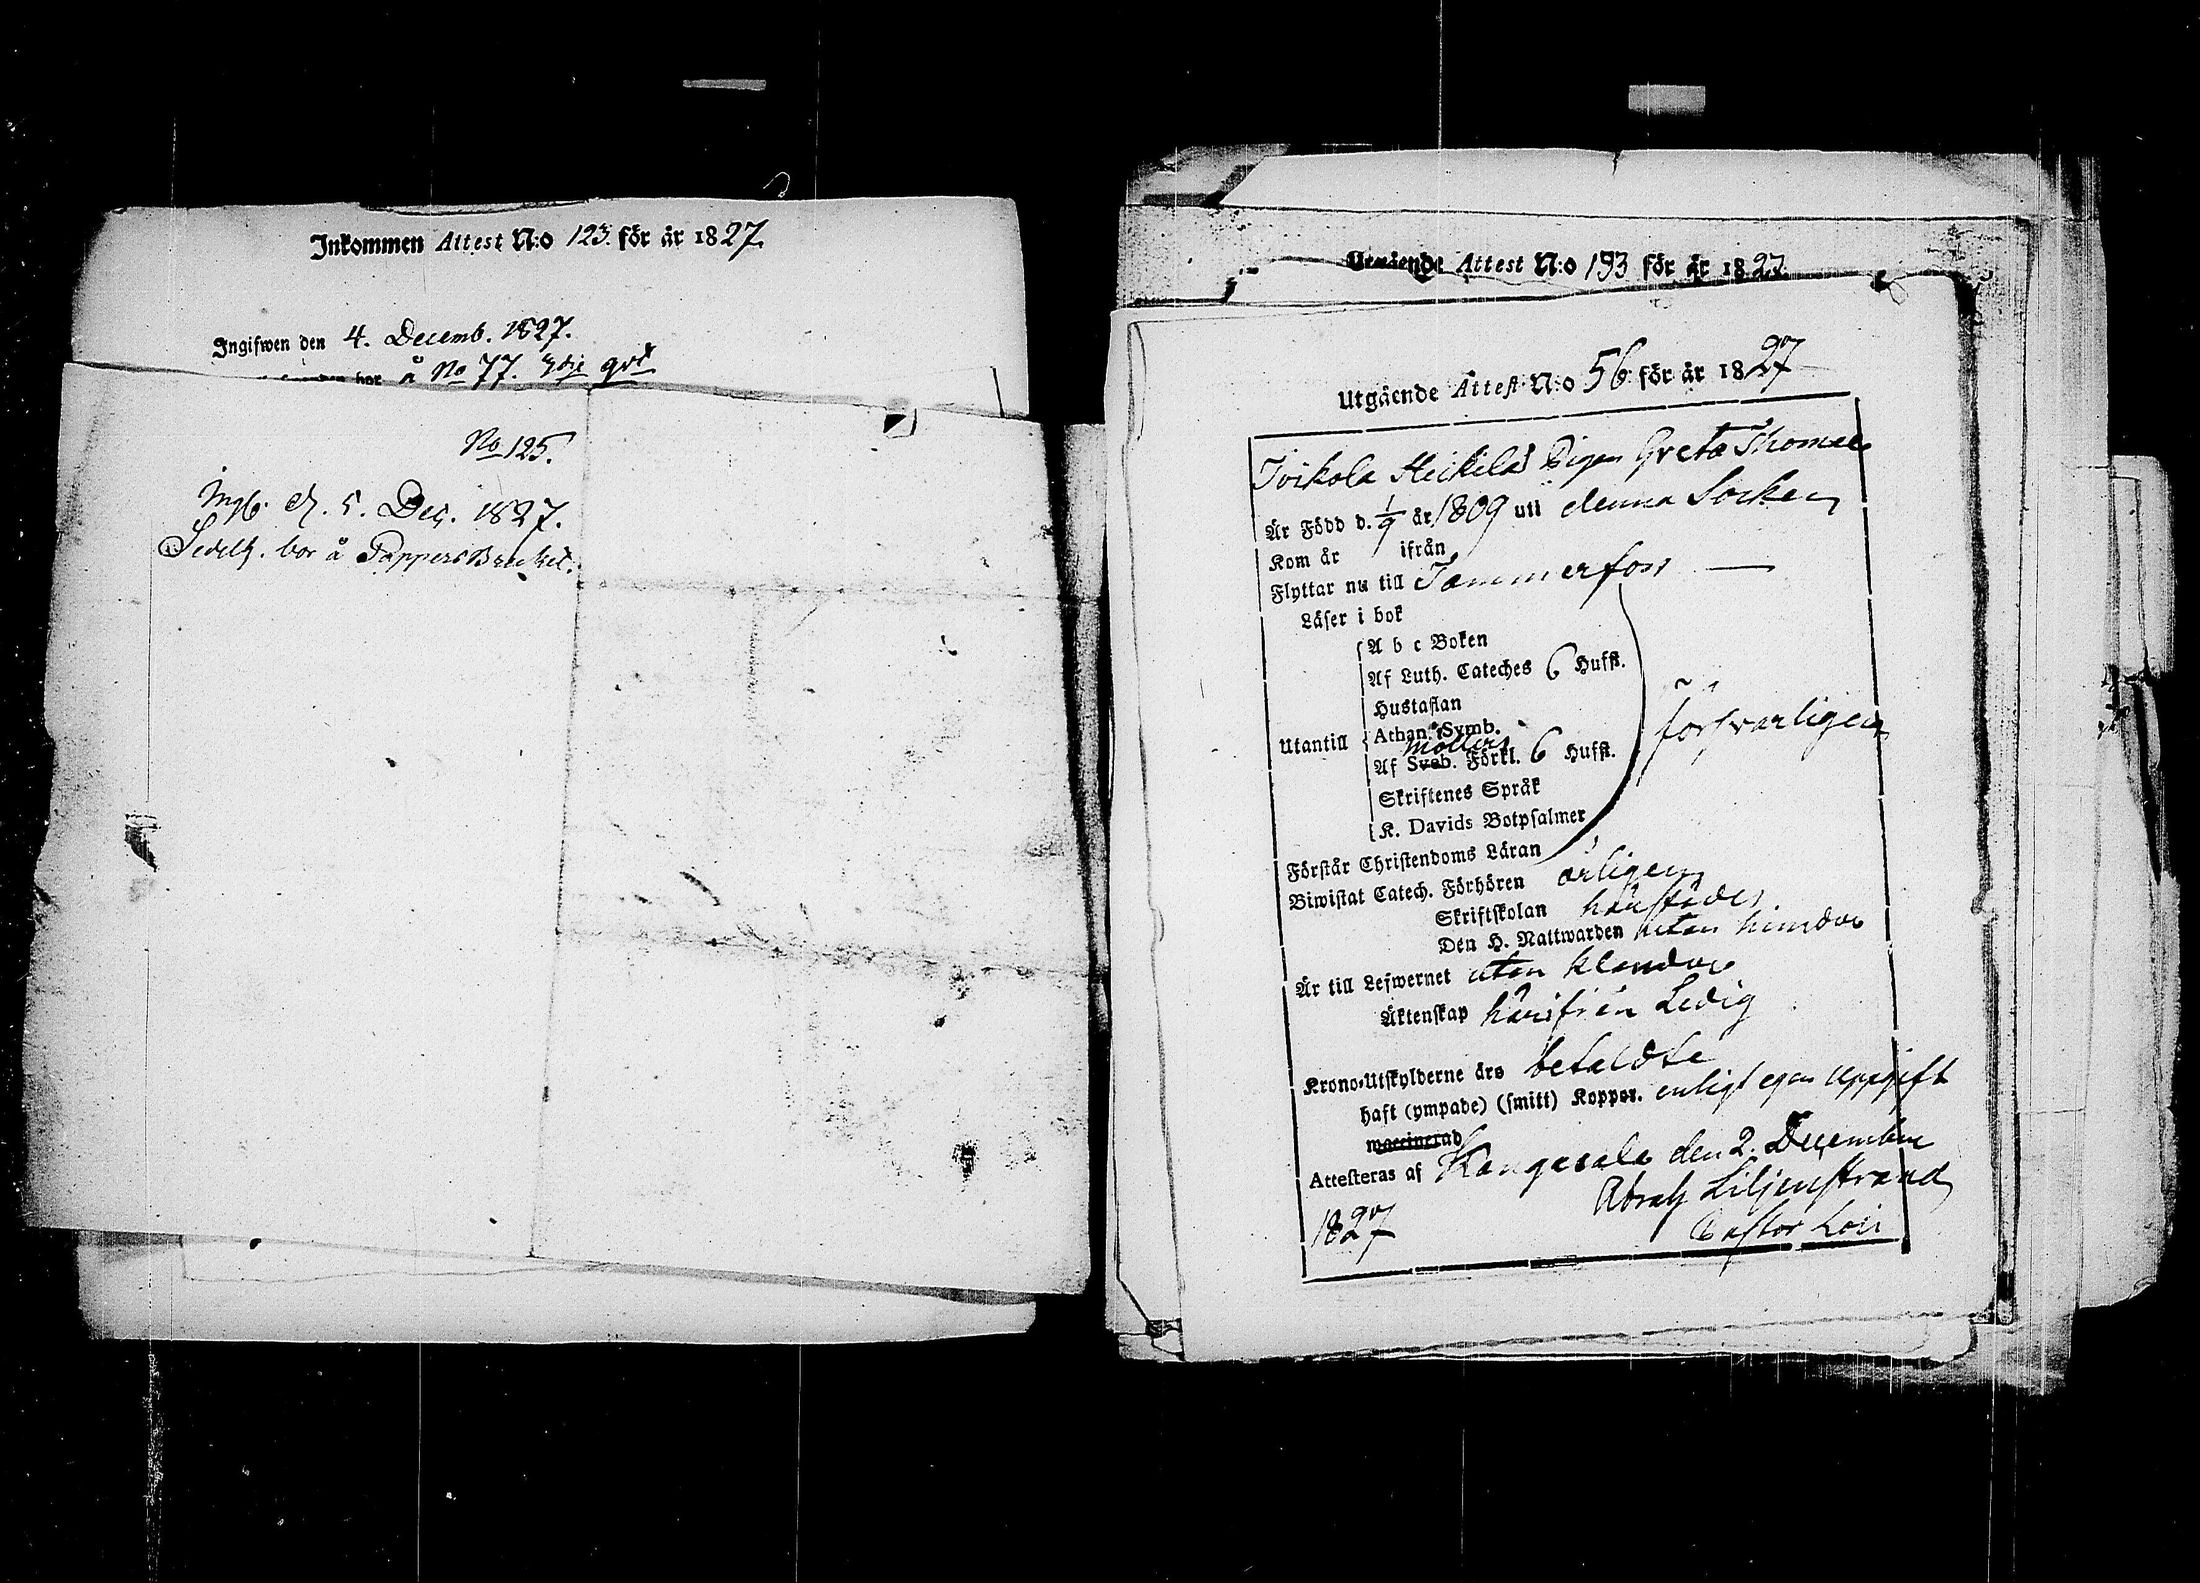 Inkommen Attest N:o 123. för år 1827.
Ingifwen den 4. Decemb. 1827.
bor å No 77. qrt
No 125.
Ingb. d. 5. Dec. 1827.
Sedelh. bor å Pappers Bruket.
Utgående Attest N:o 193 för år 1827.
Utgående Attest N:o 56 för år 1827
Toikola Heikilas Pigan Greta Thomae
Är Född d. 1/9 år 1809 uti denna Socken
Kom år ifrån
Flyttar nu till Tammerfors —
Läser i bok
A b c Boken
Af Luth. Cateches 6 Hufst.
Hustaflan
Athan. Symb.
Utantill
Möllers
Af Sveb. Förkl. 6 Hufst.
försvarligen
Skriftenes Språk
K. Davids Botpsalmer
Förstår Christendoms Läran
Biwistat Catech. Förhören årligen
Skriftskolan härstädes
Den H. Nattwarden utan hinder
Är till Lefwernet utan klander
Äktenskap härifrån Ledig
Krono-Utskylderne äro betaldte
haft (ympade) (smitt) Koppor. enligt egen uppgift
waccinerad
Attesteras af Kangasala den 2. December
1827
Abrah Liljenstrand
Pastor Loci